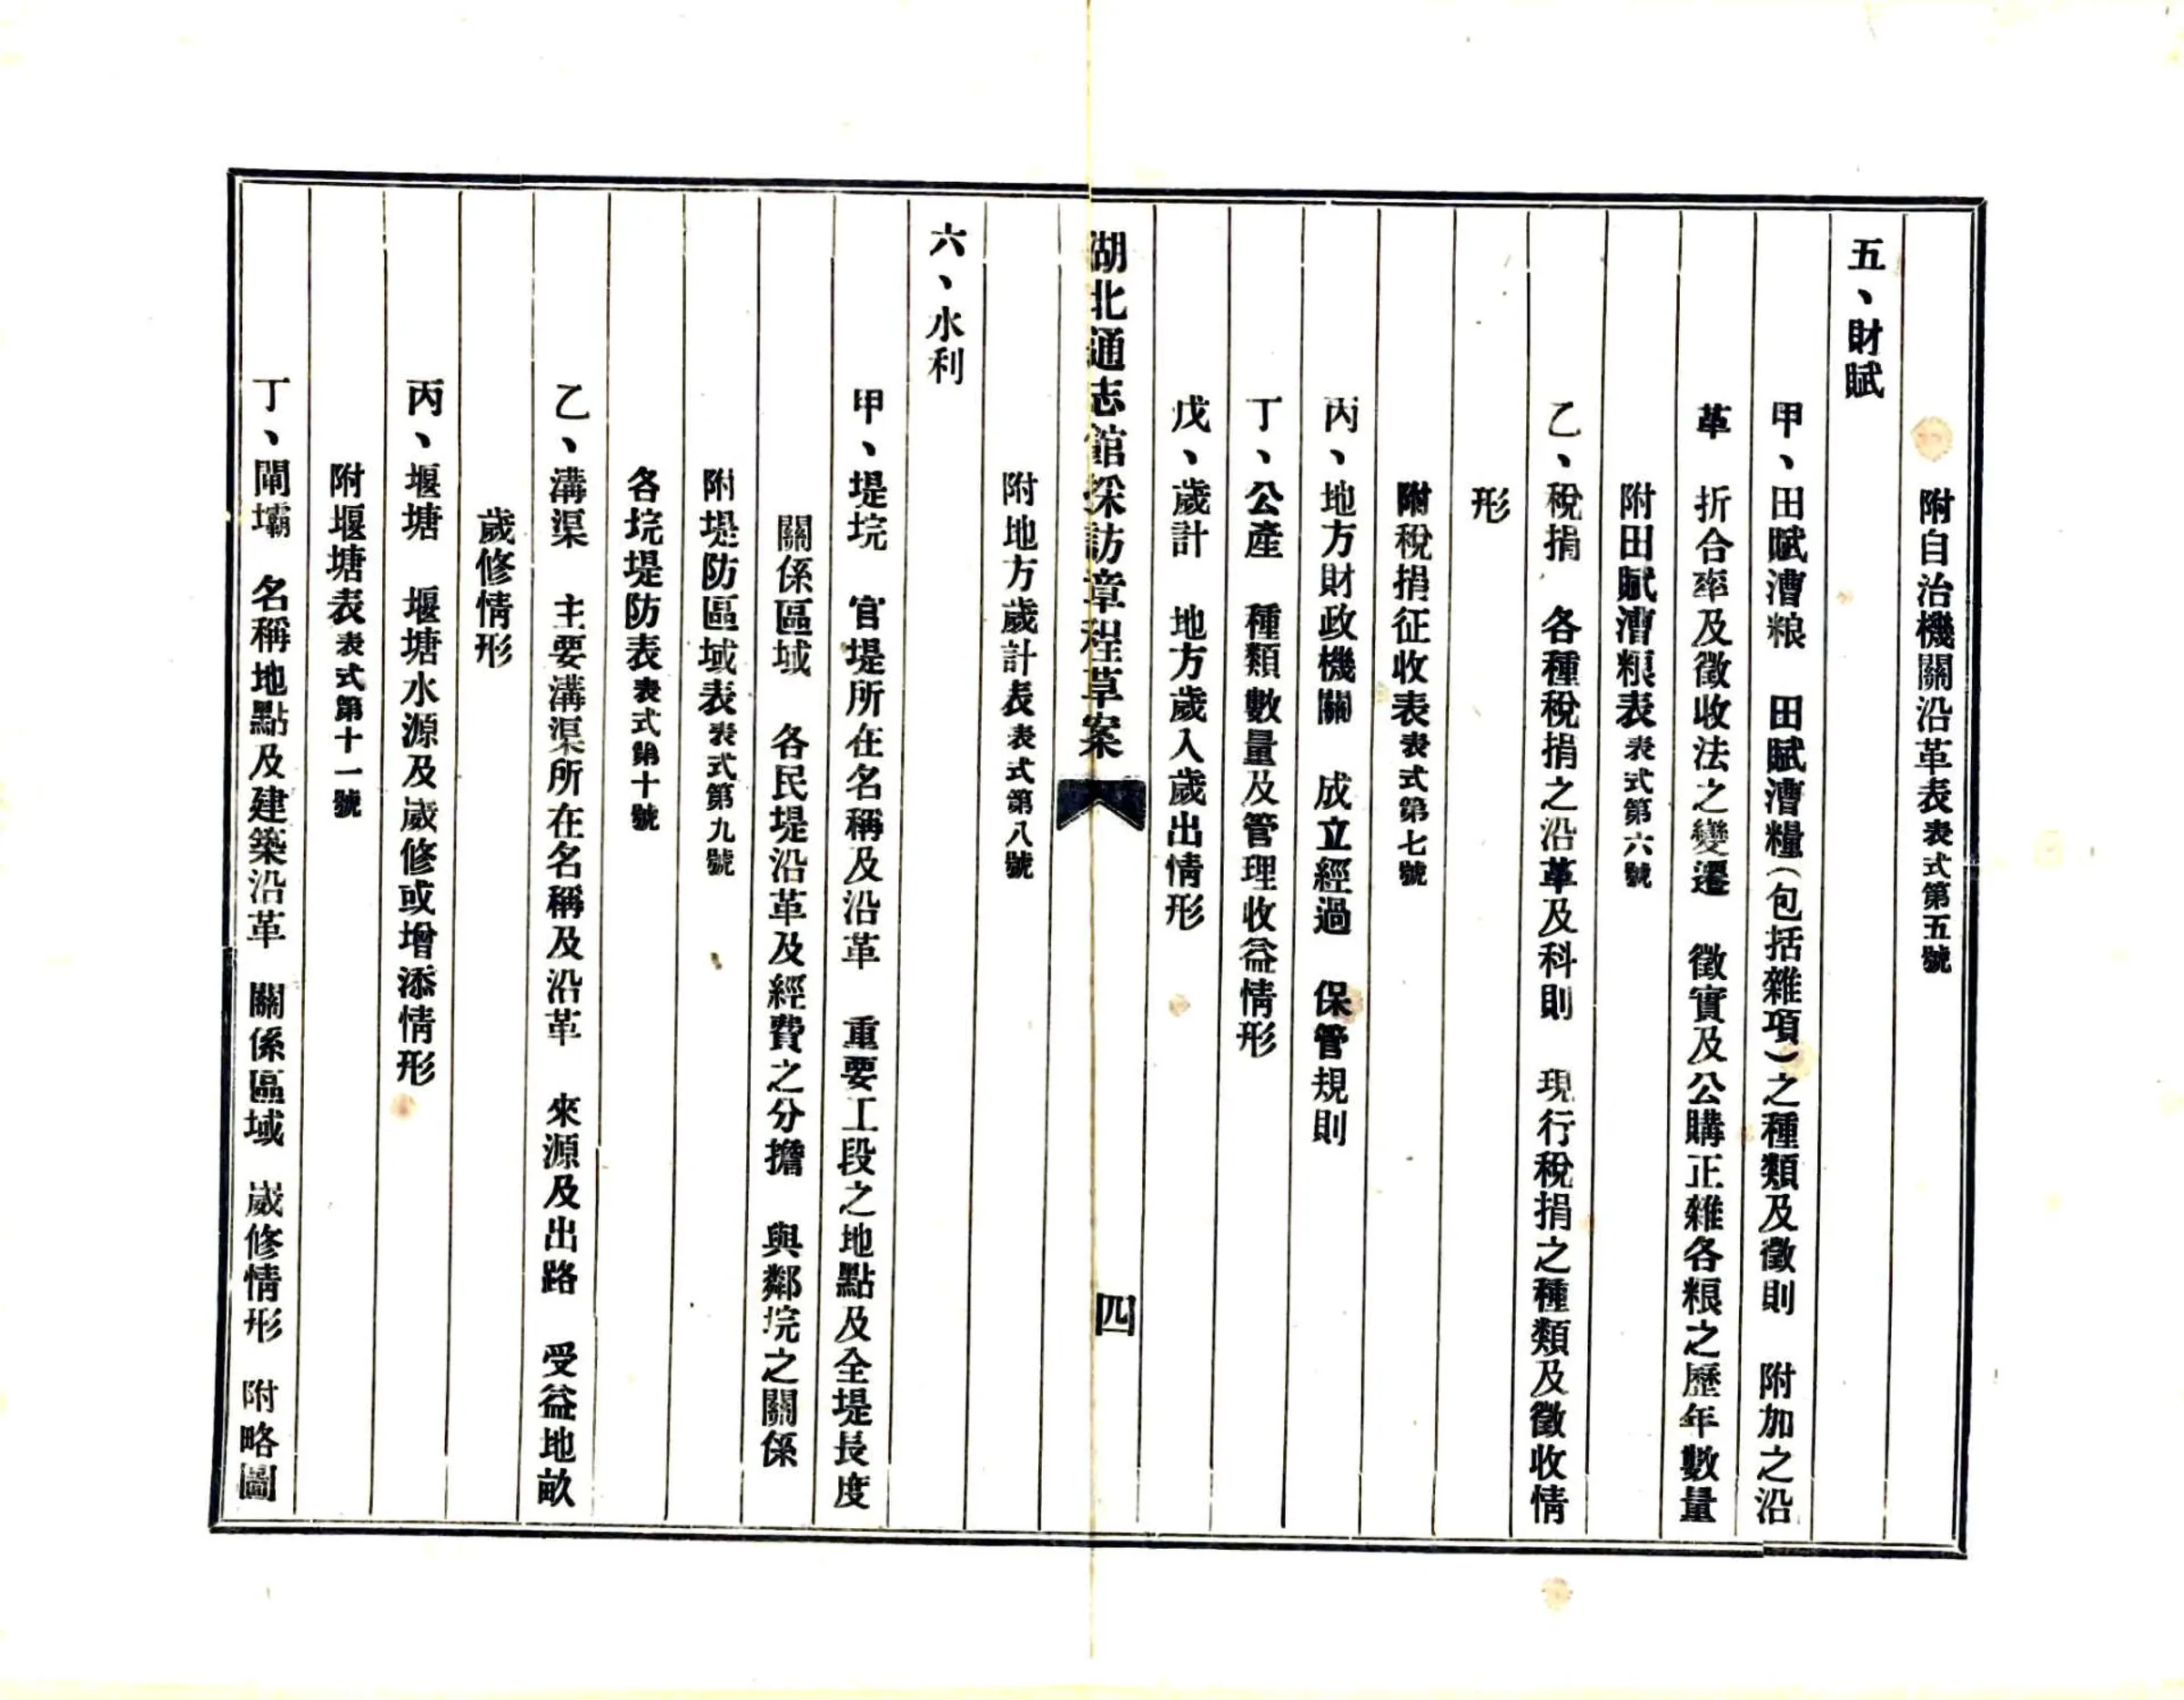 附自治機關沿革表表式第五號
五、財賦
甲、田賦漕粮　田賦漕糧（包括雜項）之種類及徵則　附加之沿
革　折合率及徵收法之變遷　徵實及公購正雜各粮之歷年數量
附田賦漕粮表表式第六號
乙、稅捐　各種稅捐之沿革及科則　現行稅捐之種類及徵收情
形
附稅捐征收表表式第七號
丙、地方財政機關　成立經過　保管規則
丁、公產　種類數量及管理收益情形
戊、歲計　地方歲入歲出情形
湖北通志館採訪章程草案
四
附地方歲計表表式第八號
六、水利
甲、堤垸　官堤所在名稱及沿革　重要工段之地點及全堤長度
關係區域　各民堤沿革及經費之分擔　與鄰垸之關係
附堤防區域表表式第九號
各垸堤防表表式第十號
乙、溝渠　主要溝渠所在名稱及沿革　來源及出路　受益地畝
歲修情形
丙、堰塘　堰塘水源及歲修或增添情形
附堰塘表表式第十一號
丁、閘壩　名稱地點及建築沿革　關係區域　歲修情形　附略圖